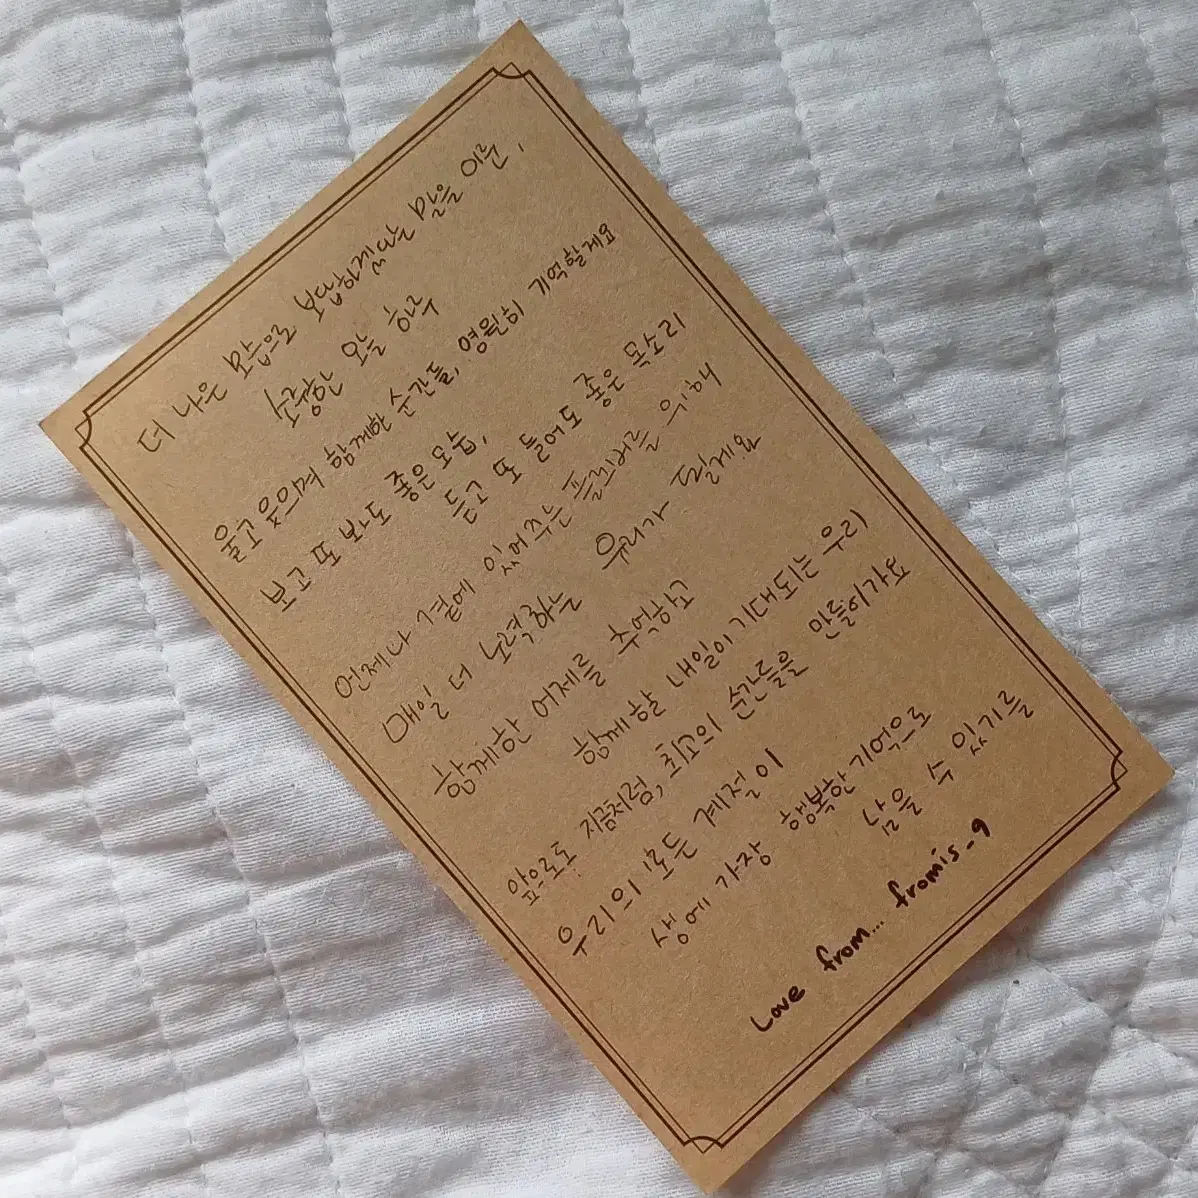 더 나은 모습으로 보답하겠다는 말을 이룬,
소중한 오늘 하루
울고 웃으며 함께한 순간들, 영원히 기억할게요
보고 또 봐도 좋은 모습,
듣고 또 들어도 좋은 목소리
언제나 곁에 있어주는 플로버를 위해
매일 더 노력하는 우리가 될게요
함께한 어제를 추억하고
함께할 내일이 기대되는 우리
앞으로도 지금처럼, 최고의 순간들을 만들어가요
우리의 모든 계절이
생에 가장 행복한 기억으로
남을 수 있기를
Love from... fromis_9